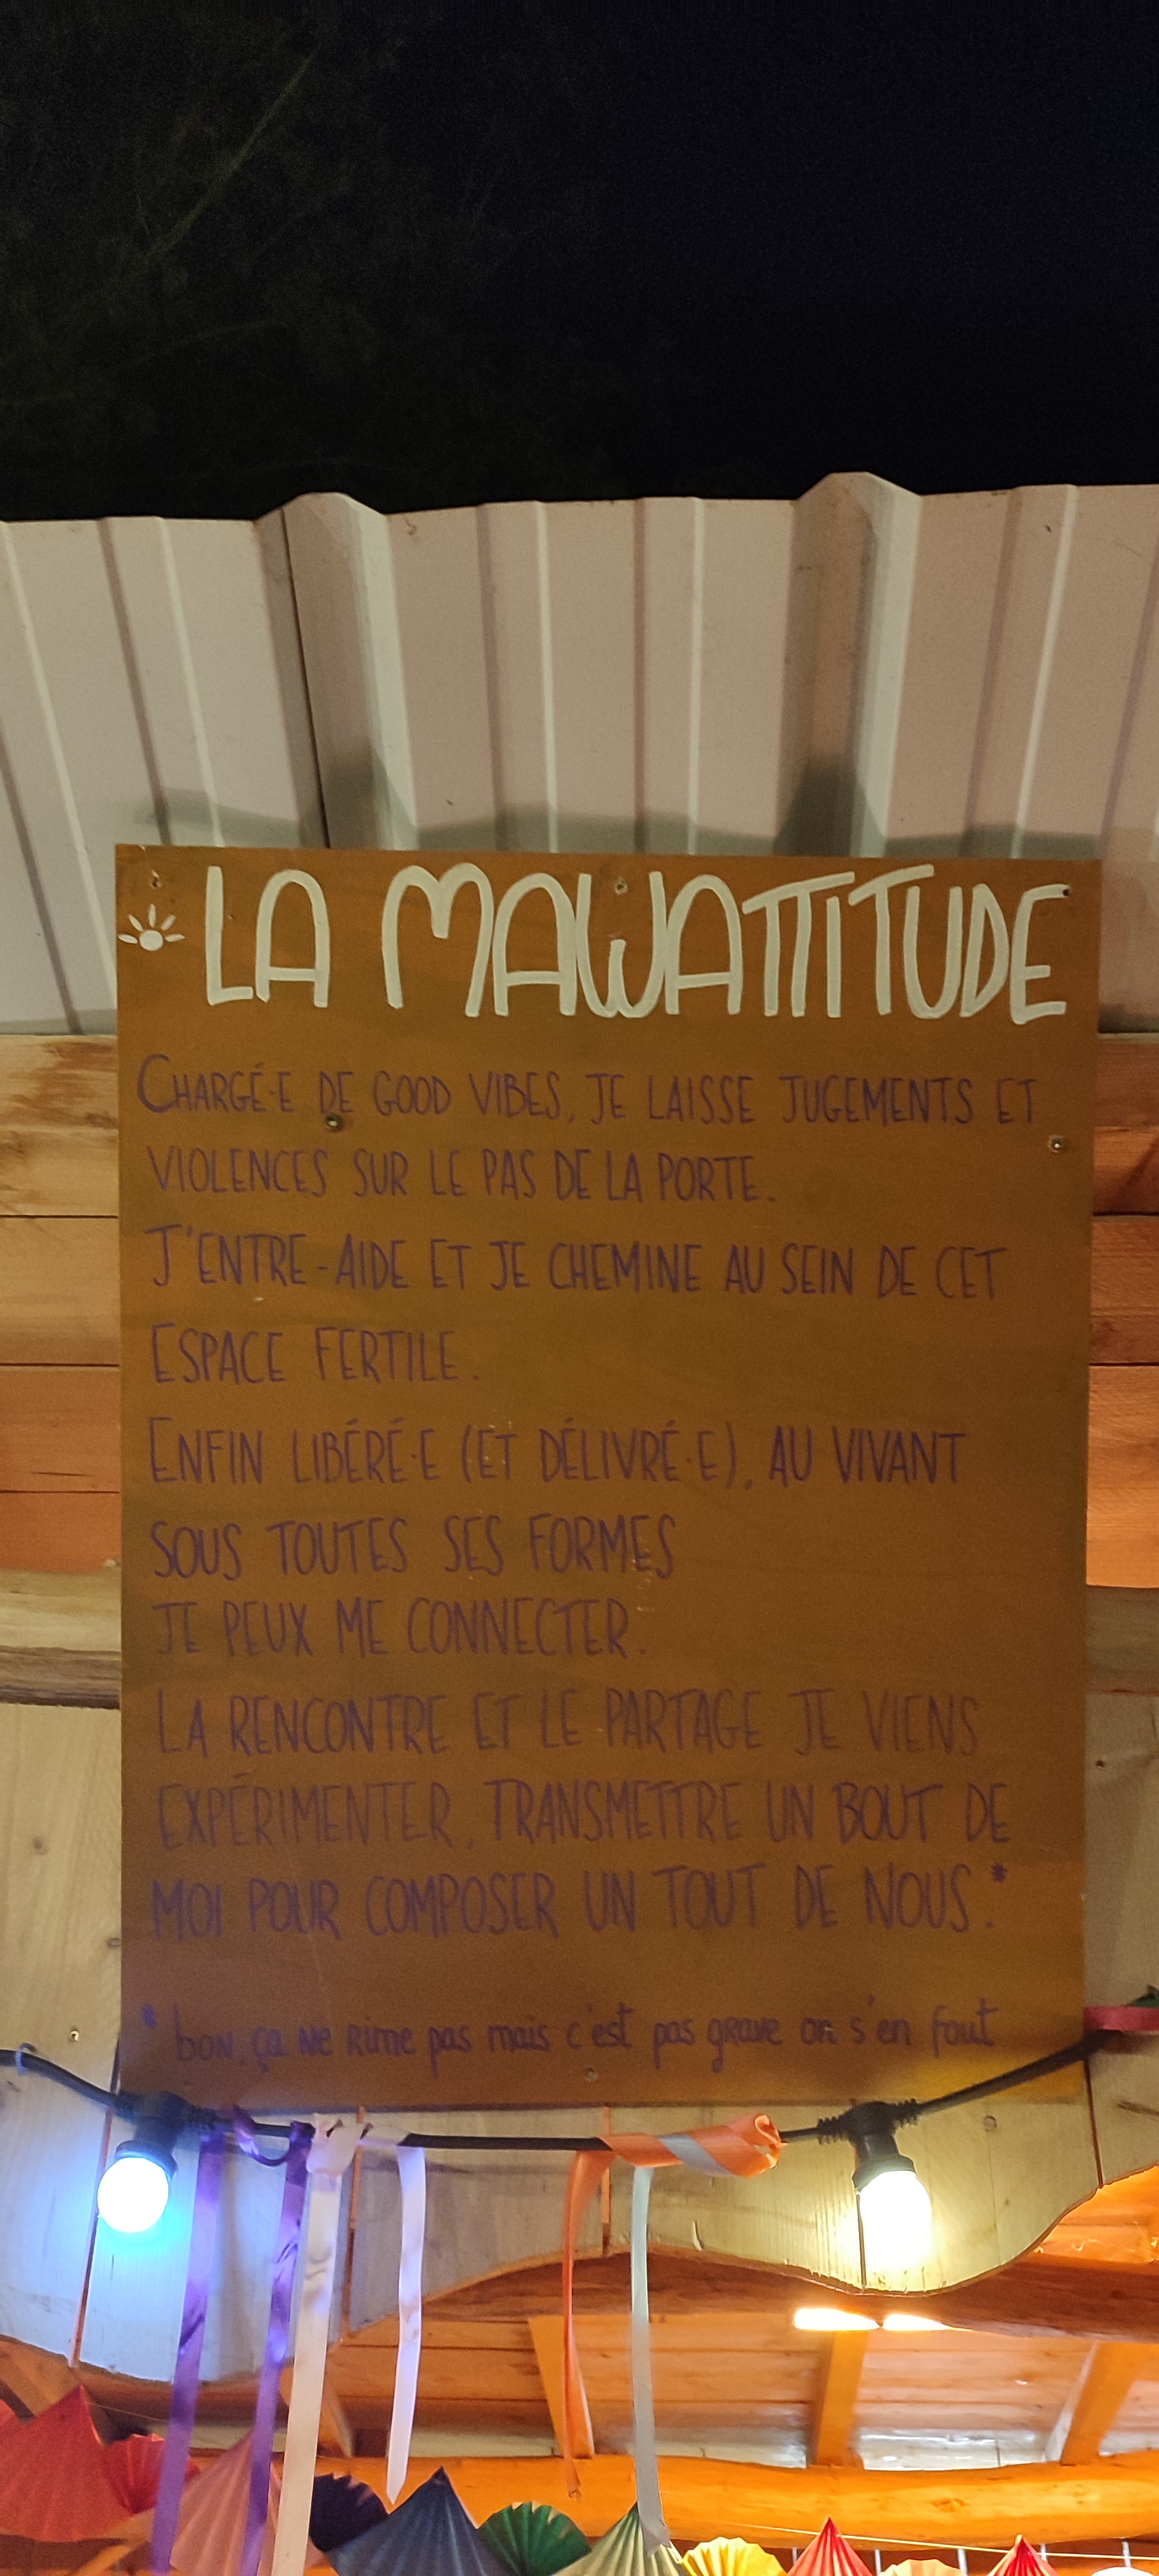 LA MAWATTITUDE
CHARGÉ·E DE GOOD VIBES, JE LAISSE JUGEMENTS ET
VIOLENCES SUR LE PAS DE LA PORTE.
J'ENTRE-AIDE ET JE CHEMINE AU SEIN DE CET
ESPACE FERTILE.
ENFIN LIBÉRÉ·E (ET DÉLIVRÉ·E), AU VIVANT
SOUS TOUTES SES FORMES
JE PEUX ME CONNECTER.
LA RENCONTRE ET LE PARTAGE JE VIENS
EXPÉRIMENTER, TRANSMETTRE UN BOUT DE
MOI POUR COMPOSER UN TOUT DE NOUS.*
* bon, ça ne rime pas mais c'est pas grave on s'en fout